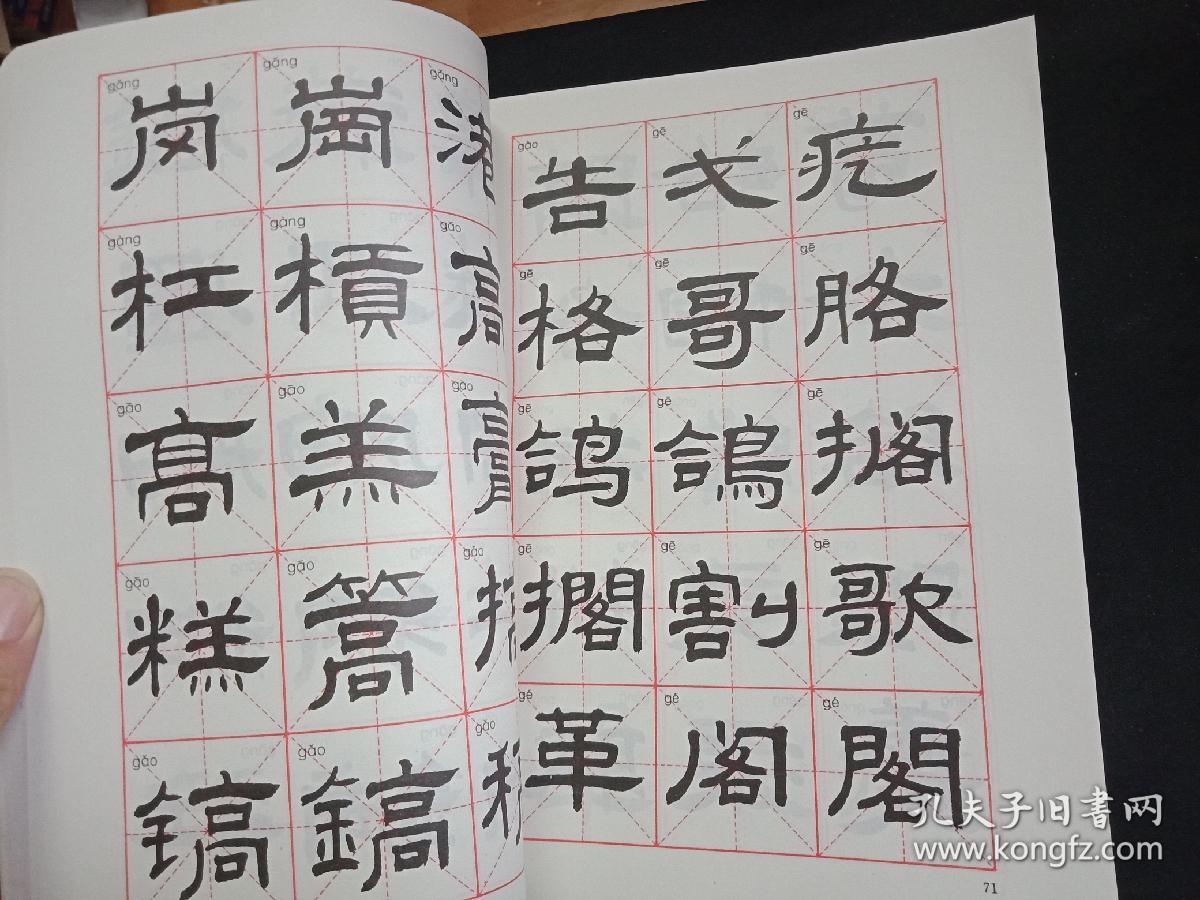 gǎng gǎng gǎng
岗 崗 港
gàng gàng gāo
杠 槓 高
gāo gāo gāo
髙 羔 膏
gāo gāo gǎo
糕 篙
gǎo gǎo gǎo
镐 鎬
gào gē gē
告 戈 疙
gē gē gē
格 哥 胳
gē gē gē
鸽 鴿 搁
gē gē gē
擱 割 歌
gé gé gé
革 阁 閣
71
孔夫子旧書网
www.kongfz.com